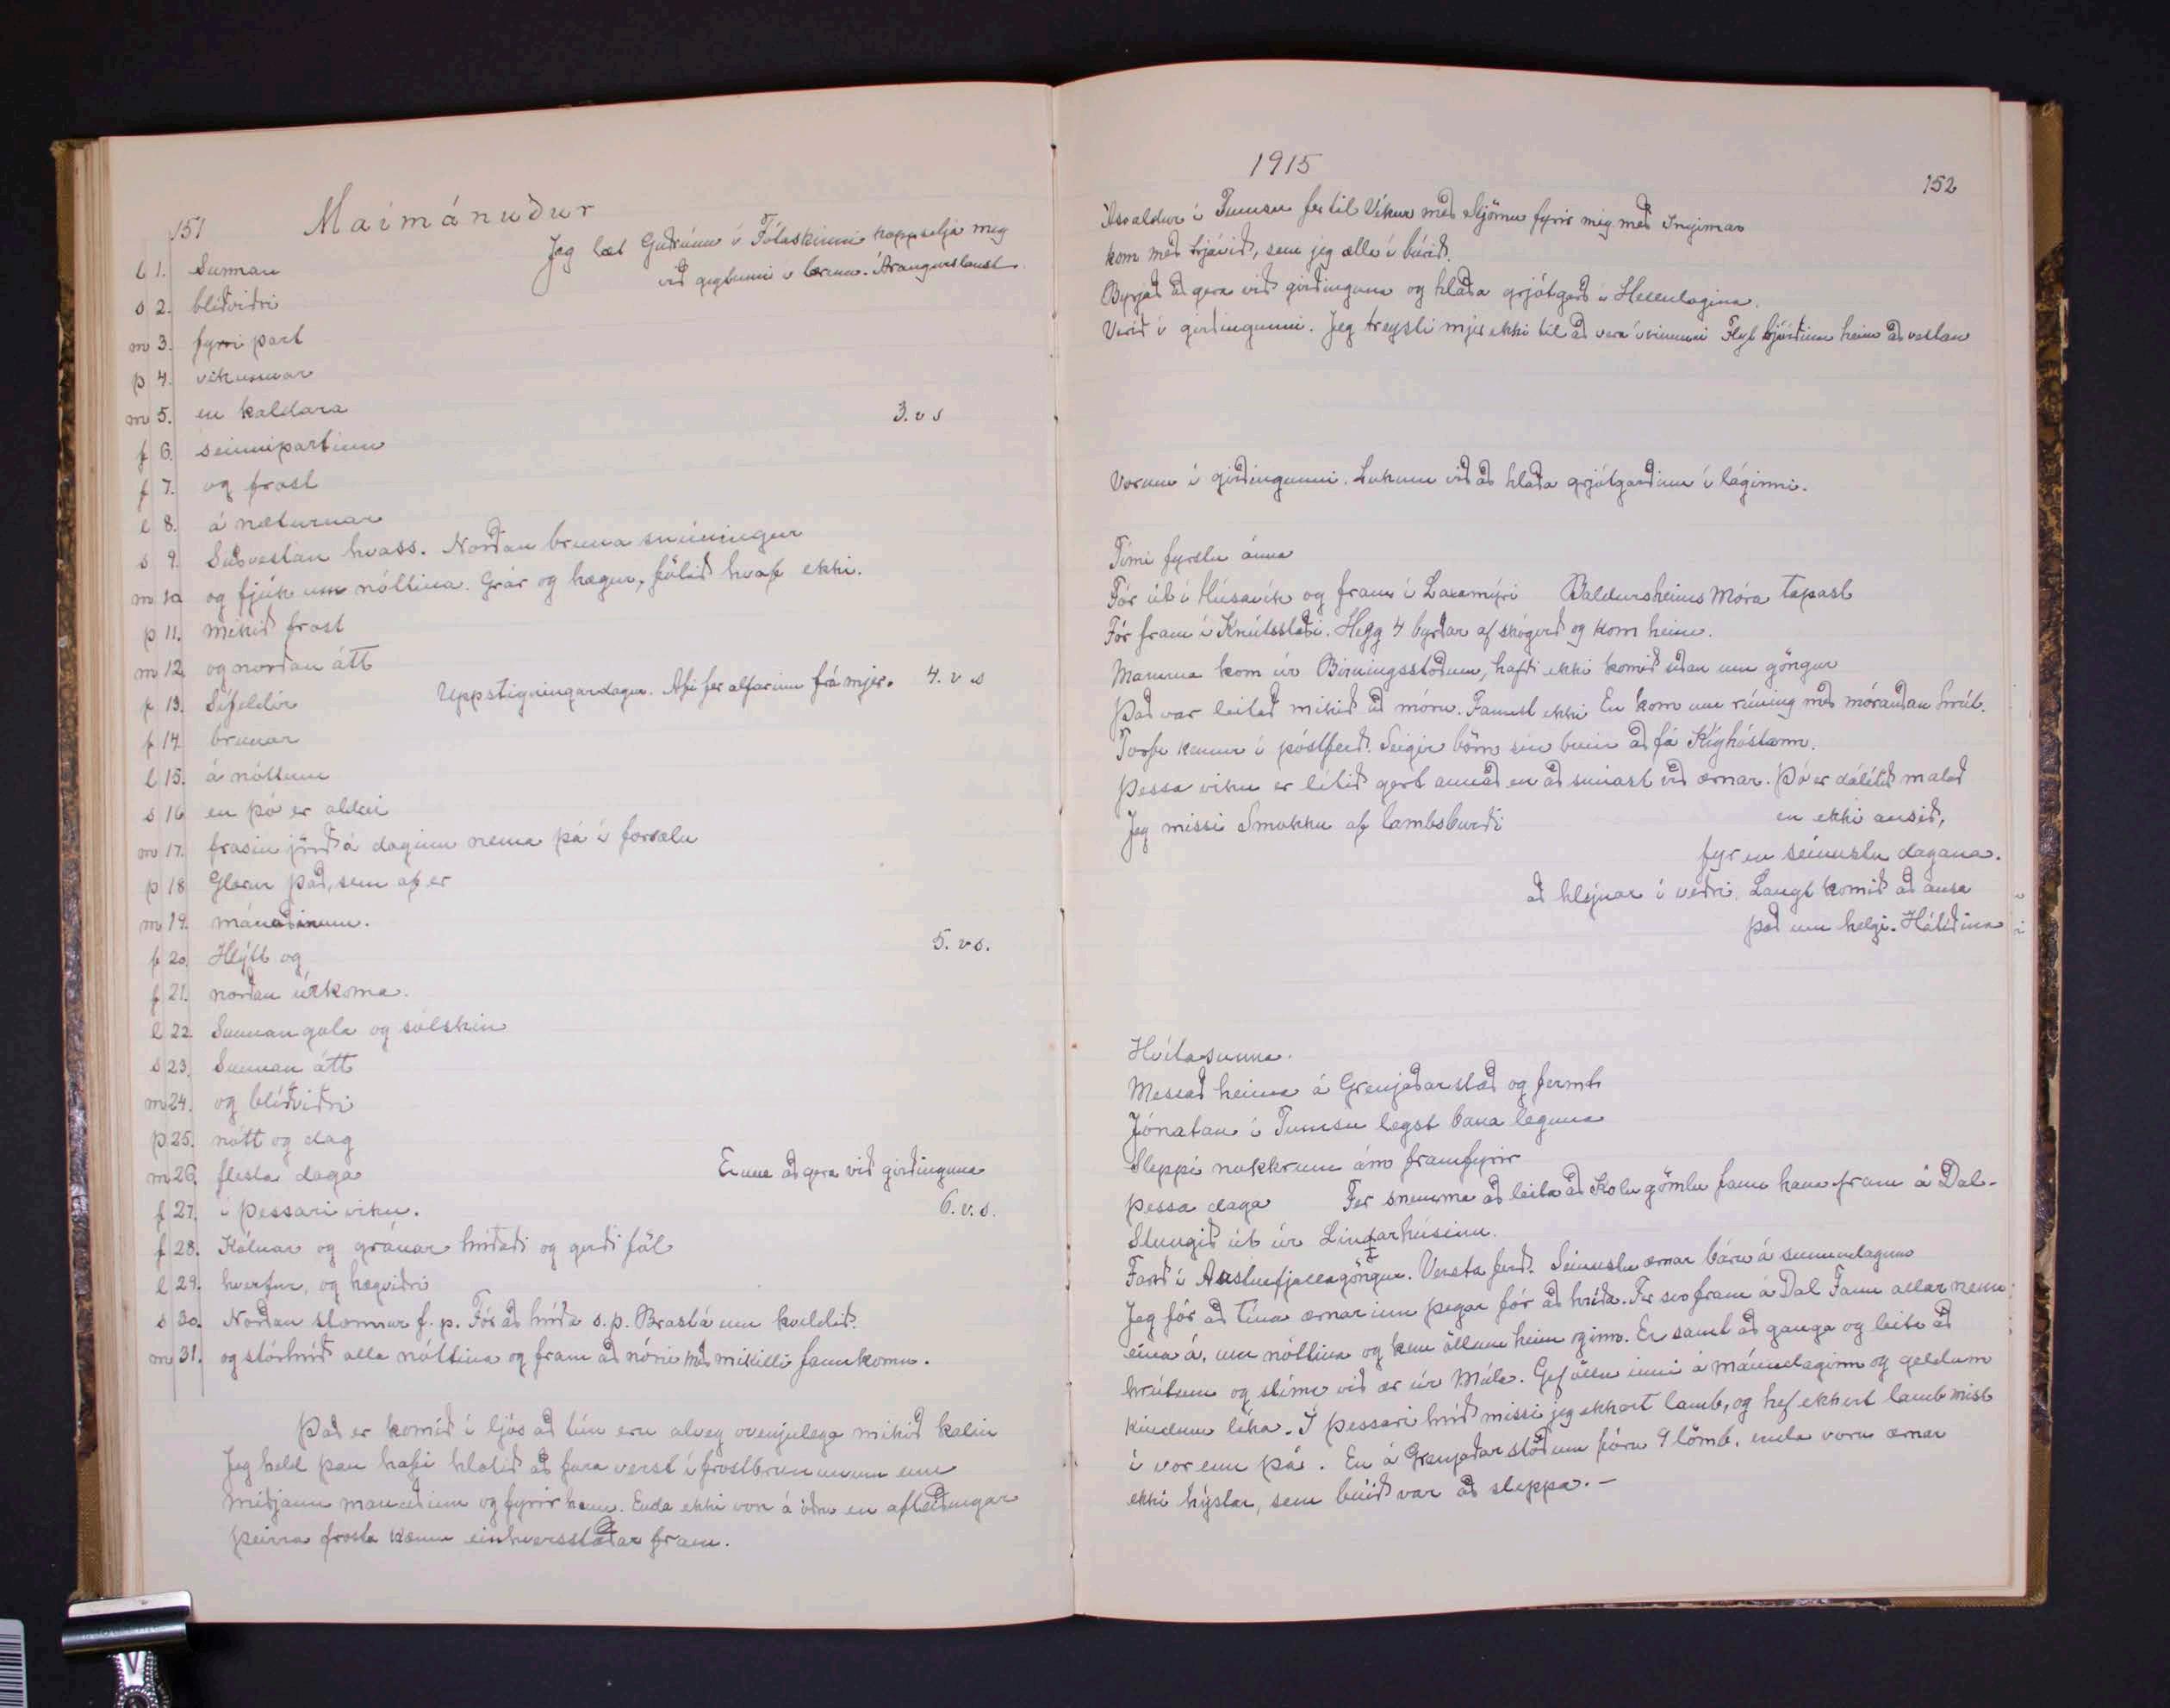 151
Maímánuður
l 1. Sunnan
Jeg læt Guðrúnu í Fótaskinni koppsetja mig
við gigtinni í lærinu. Árangurslaust.
s 2. blíðviðri
m 3. fyrri part
þ 4. vikunnar
m 5. en kaldara
3. v s
f 6. seinnipartinn
f 7. og frost
l 8. á næturnar
s 9. Suðvestan hvass. Norðan bruna snúningur
m 10 og fjúk um nóttina. Grár og hægur, fölið hvarf ekki.
þ 11. mikið frost
m 12 og norðan átt
f 13. Sífeldir
Uppstigningardagur. Afi fer alfarinn frá mjer. 4. v s
f 14. brunar
l 15. á nóttum
s 16 en þó er aldrei
m 17. frosin jörð á daginn nema þá í forsælu
þ 18 Glærur það, sem af er
m 19. mánaðinum.
f 20. Hlýtt og
5. v s.
f 21. norðan úrkoma.
l 22. Sunnan gola og sólskin
s 23. Sunnan átt
m 24. og blíðviðri
þ 25. nótt og dag
m 26. flesta daga
Erum að gera við girðinguna
f 27. í þessari viku.
6. v. s.
f 28. Kólnar og gránar hríðaði og gerði föl
l 29. hverfur, og hægviðri
s 30. Norðan stormur f. p. Fór að hríða s. p. Brast á um kveldið.
m 31. og stórhríð alla nóttina og fram að nóni með mikilli fannkomu.
Það er komið í ljós að tún eru alveg óvenjulega mikið kalin
Jeg held þau hafi hlotið að fara verst í frostbrununum um
miðjann mánuðinn og fyrir hann. Enda ekki von á öðru en afleiðingar
þeirra frosta kæmu einhversstaðar fram.
1915
152
Ásvaldur í Tumsu fer til Víkur með Stjörnu fyrir mig með Ingimar
kom með trjávið, sem jeg ætla í búrið.
Byrjað að gera við girðinguna og hlaða grjótgarð í
Verið í girðingunni. Jeg treysti mjer ekki til að vera í vinnunni Flyt hjörðina heim að vestan
Vorum í girðingunni. Lukum við að hlaða grjótgarðinn í láginni.
Tími fyrstu ánna
Fór út í Húsavík og fram í Laxamýri Baldursheims Móra tapast
Fór fram í Knútsstaði. Hegg 4 byrðar af skógvið og kom heim.
Mamma kom úr Birningsstöðum, hafði ekki komið síðan um göngur
Það var leitað mikið að móru. Fannst ekki En kom um rúning með mórauðan hrút.
Torfi kemur í póstferð. Seigir börn sín búin að fá Kíghóstann.
Þessa viku er lítið gert annað en að snúast við ærnar. Þó er dálítið malað
Jeg missi Smokku af lambsburði
en ekki ausið,
fyr en seinustu dagana.
að hlýnar í veðri. Langt komið að ausa
það um helgi. Hátíðina
Hvítasunna.
Messað heima á Grenjaðarstað og fermt
Jónatan í Tumsu legst bana leguna
Sleppi nokkrum ám framfyrir
þessa daga Fer snemma að leita að Kolu gömlu fann hana fram á Dal-
Stungið út úr Lindarhúsinu.
Farið í Austurfjallagöngur. Versta ferð. Seinustu ærnar báru á sunnudaginn
Jeg fór að tína ærnar inn þegar fór að hríða. Fer svo fram á Dal Fann allar nema
eina á, um nóttina og kem öllum heim og inn. Er samt að ganga og leita að
hrútum og stíma við ær úr Múla. Gef öllu inni á mánudaginn og geldum
kindum líka. Í þessari hríð missi jeg ekkert lamb, og hef ekkert lamb mist
í vor enn þá. En á Grenjaðarstöðum fóru 9 lömb, enda voru ærnar
ekki hýstar, sem búið var að sleppa.-